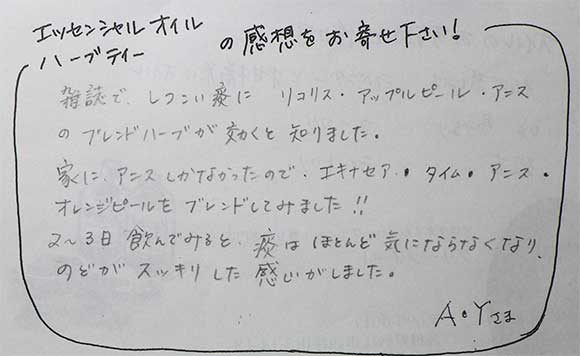 エッセンシャルオイル
ハーブティー の感想をお寄せ下さい!
雑誌で、しつこい痰に リコリス・アップルピール・アニス
のブレンドハーブが効くと知りました。
家に、アニスしかなかったので・エキナセア・タイム・アニス・
オレンジピールをブレンドしてみました!!
2～3日飲んでみると、痰はほとんど気にならなくなり、
のどがスッキリした感じがしました。
A・Yさま